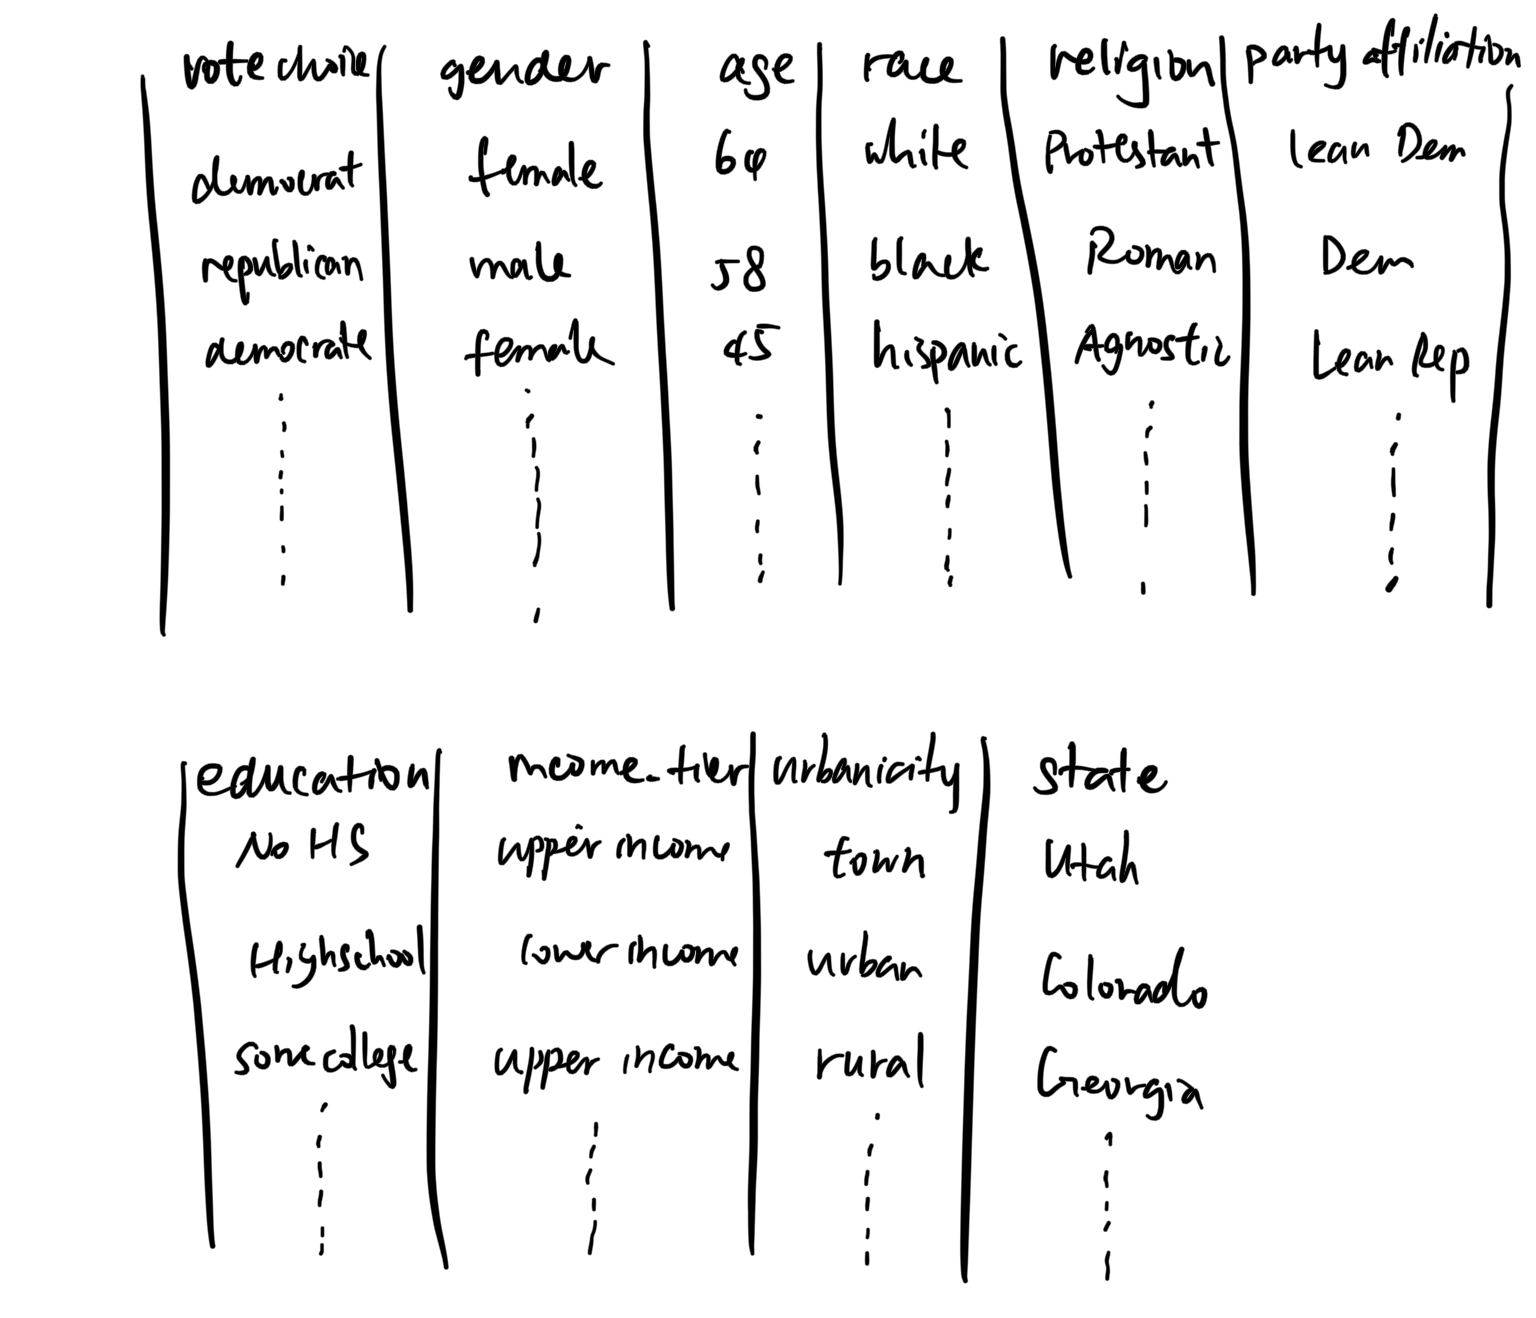 vote choice gender age race religion party affiliation
democrat female 64 white Protestant lean Dem
republican male 58 black Roman Dem
democrate female 45 hispanic Agnostic Lean Rep
education income_tier urbanicity state
No HS upper income town Utah
High school lower income urban Colorado
some college upper income rural Georgia